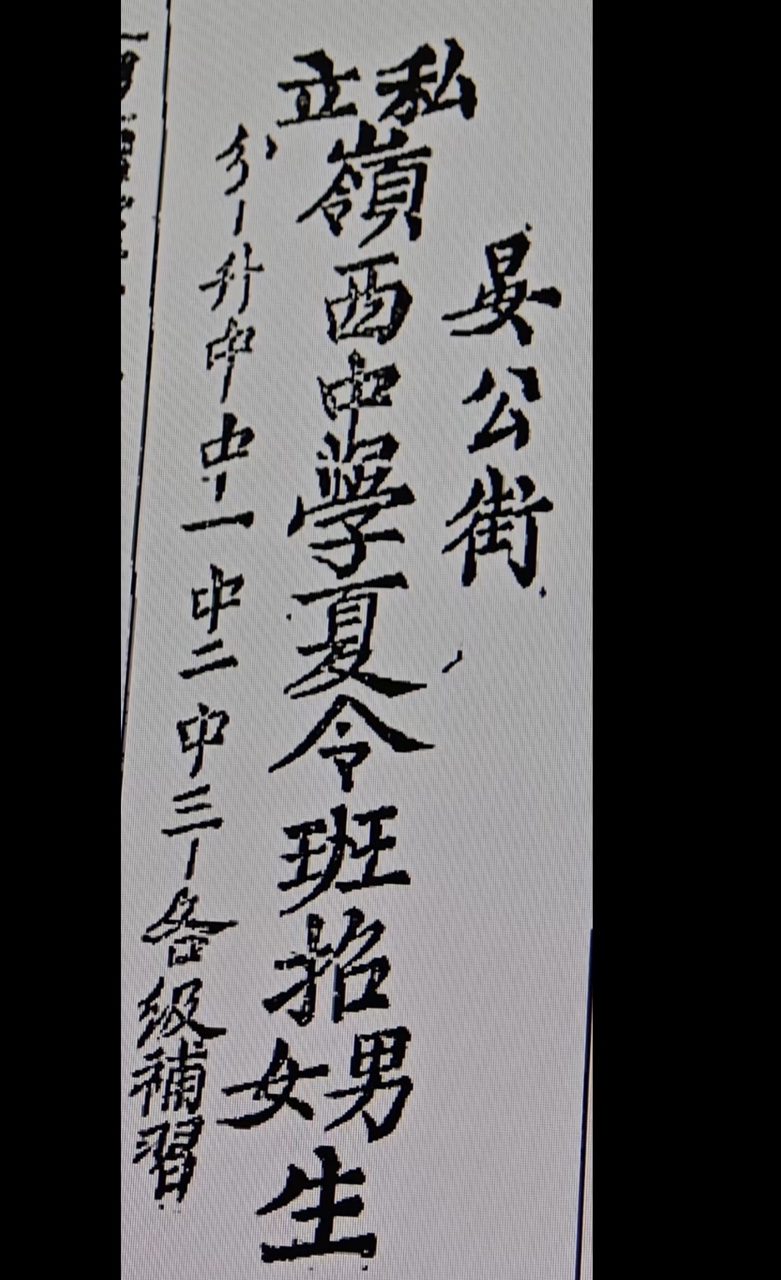 晏公街
私立嶺西中學夏令班招男女生
分—升中中—一中二中三—各級補習